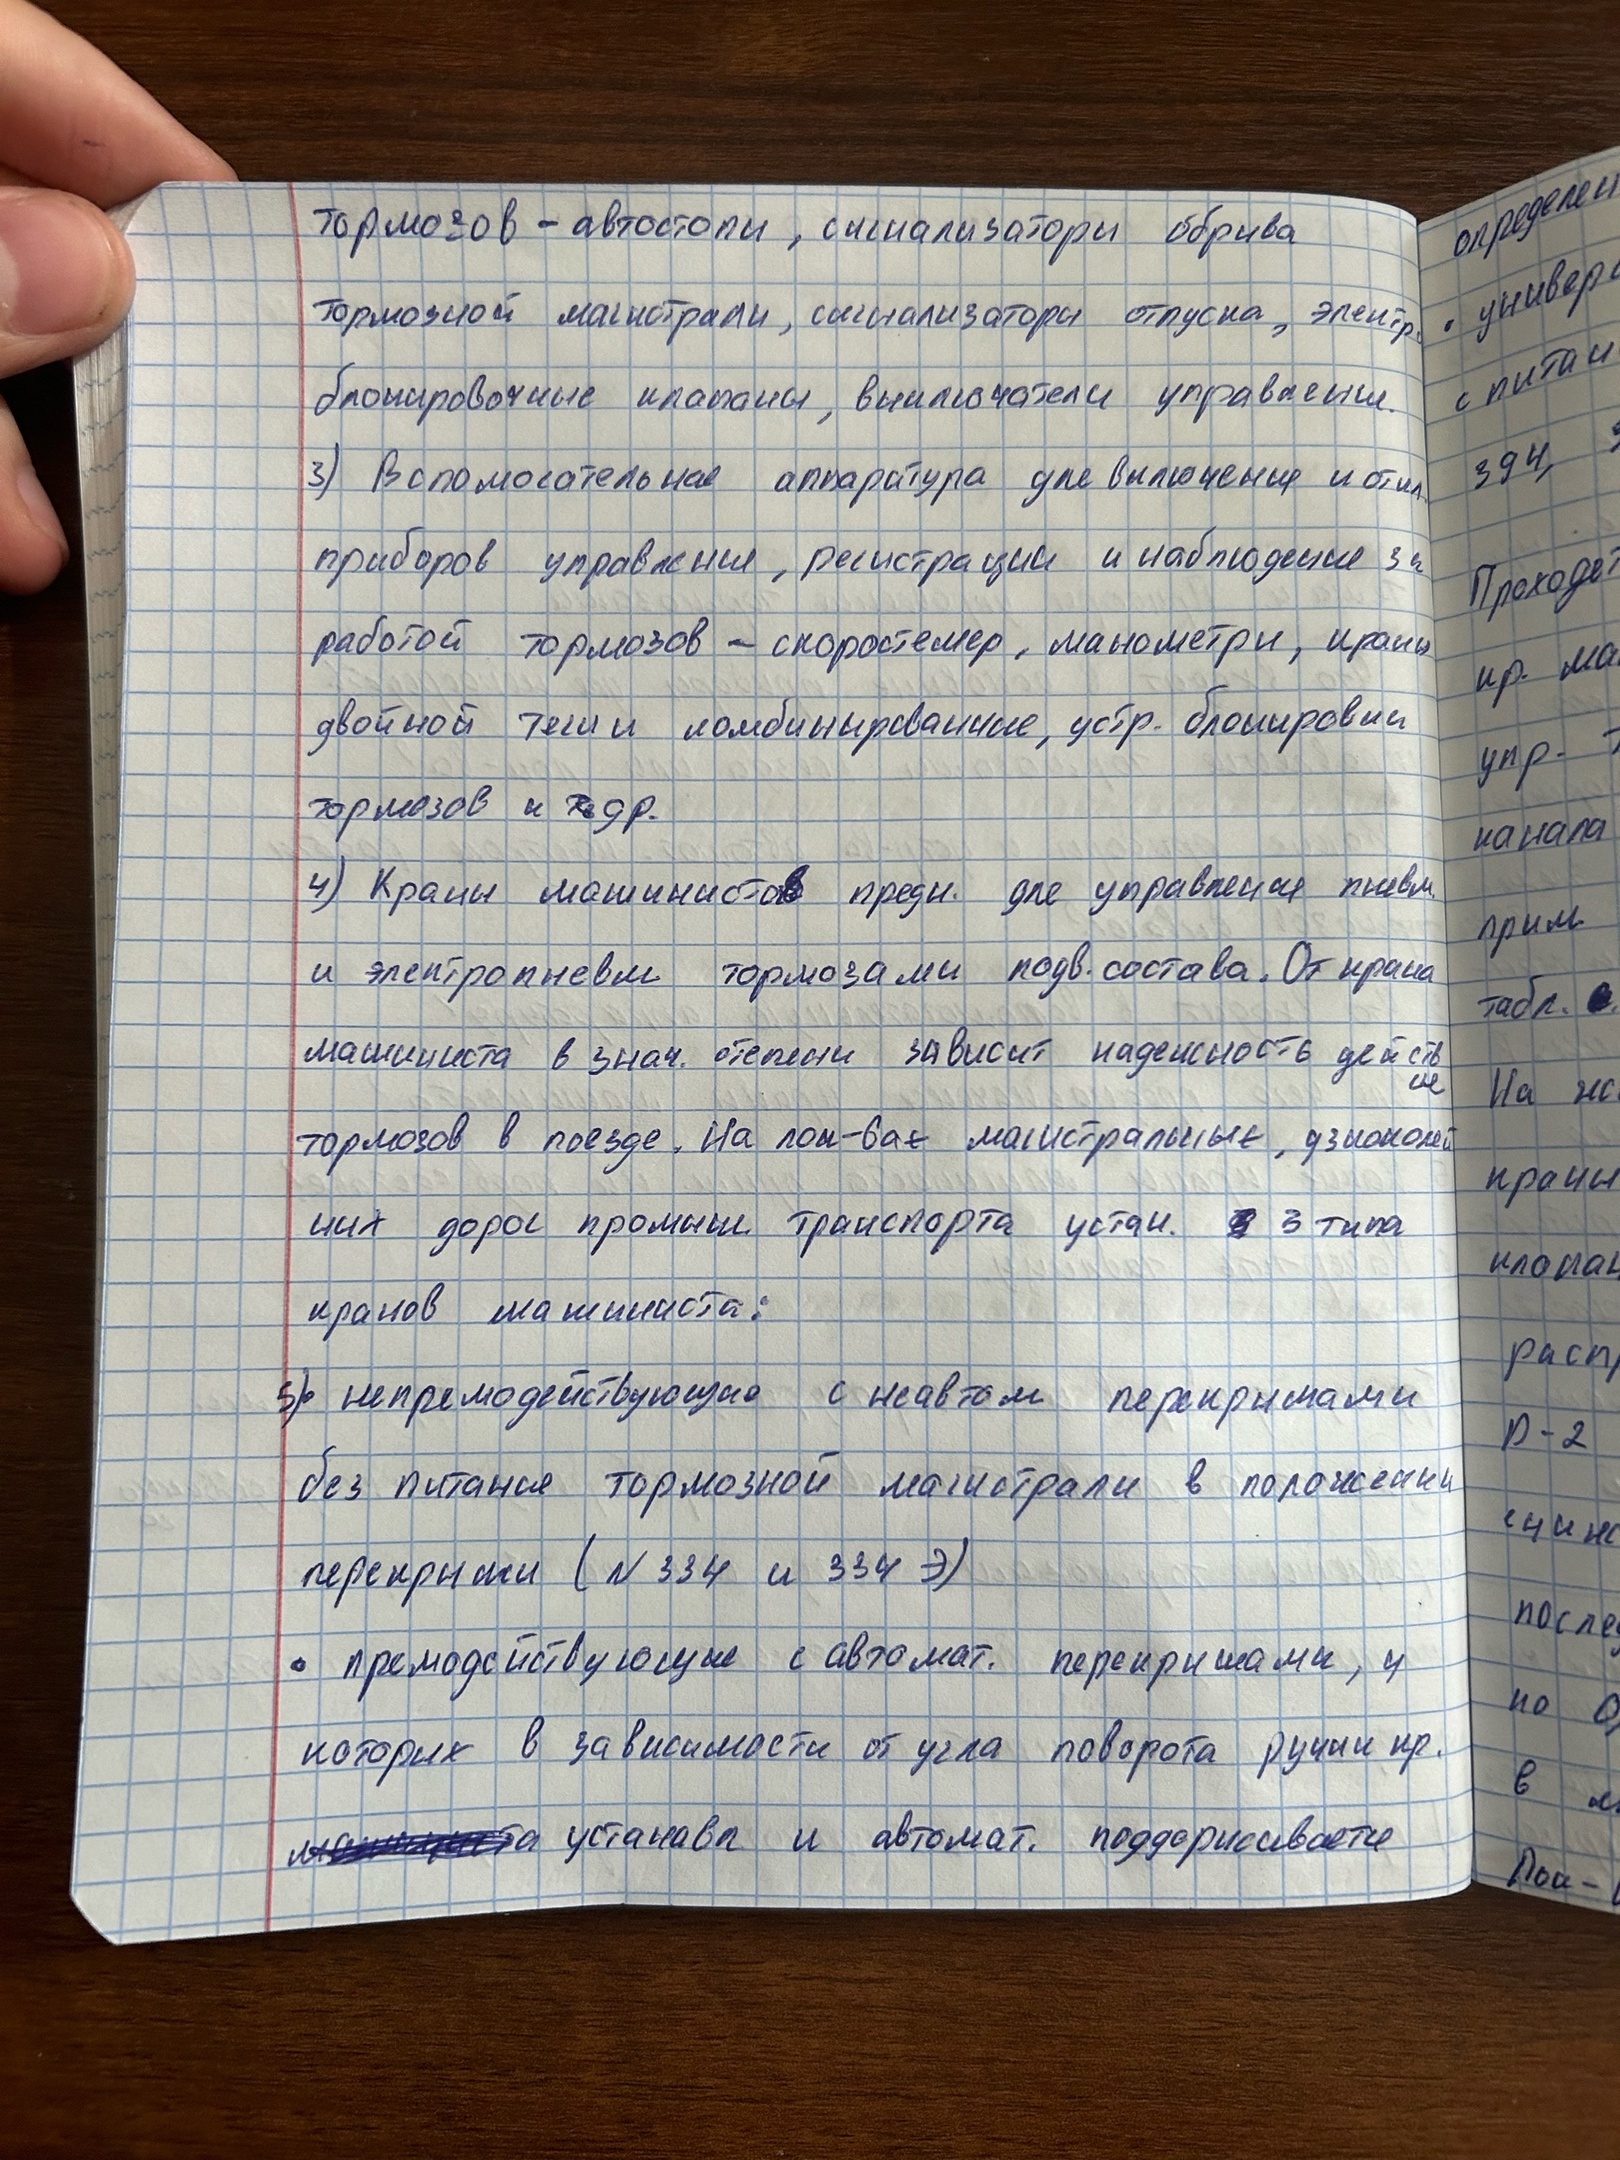 тормозов – автостопы, сигнализаторы обрыва
тормозной магистрали, сигнализаторы отпуска, электр.
блокировочные клапаны, выключатели управления.
3) Вспомогательная аппаратура для включения и откл.
приборов управления, регистрации и наблюдения за
работой тормозов – скоростемер, манометры, краны
двойной тяги и комбинированные, устр. блокировки
тормозов и др.
4) Краны машинистов предн. для управления пневм.
и электропневм тормозами подв. состава. От крана
машиниста в знач. степени зависит надежность действ
ие
тормозов в поезде. На лок-вах магистральных, узкоколей
ных дорог промышл. транспорта устан. 3 типа
кранов машиниста:
5) • непрямодействующие с неавтом перекрышами
без питания тормозной магистрали в положении
перекрыши (N 334 и 334 Э)
• прямодействующие с автомат. перекрышами, у
которых в зависимости от угла поворота ручки кр.
устанавл и автомат. поддерживается
определен
• универс
с питани
394,
Проходят
кр. ма
упр. т
канала
прим
табл.
На
краны
клапан
расп
D-2
послед
по
в
Лок-